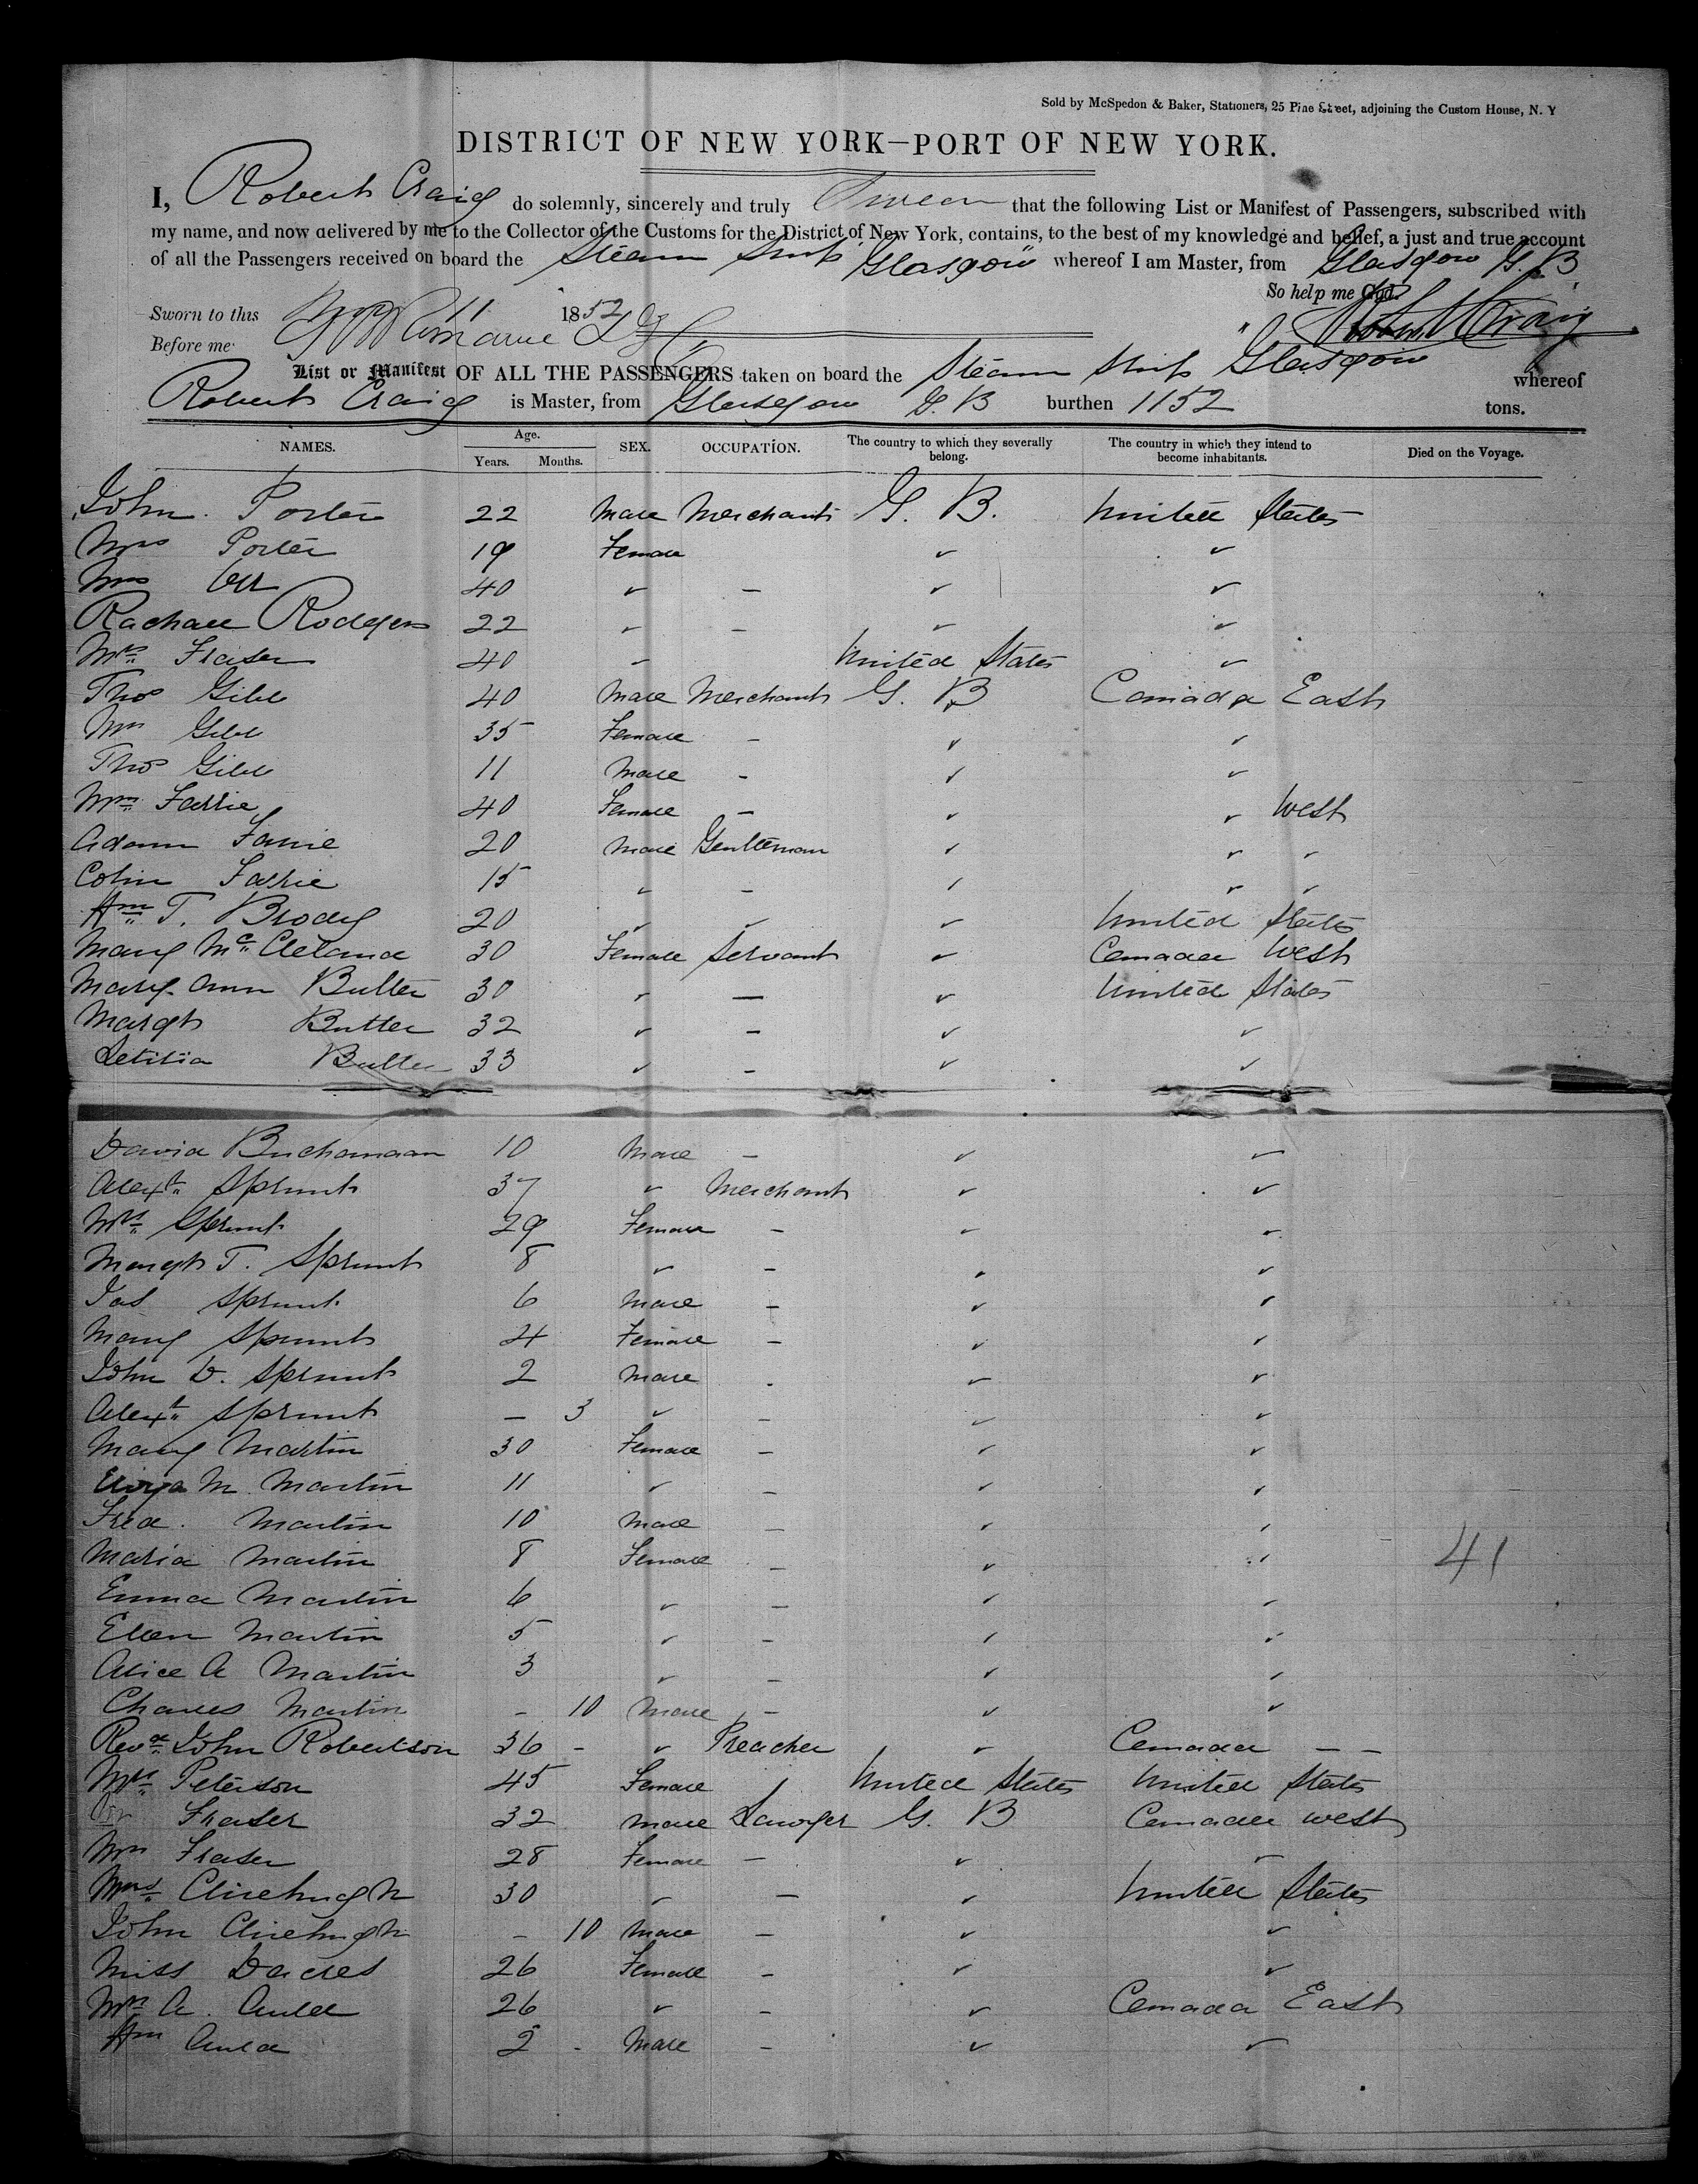 Sold by McSpedon & Baker, Stationers, 25 Pine Street, adjoining the Custom House, N. Y
DISTRICT OF NEW YORK—PORT OF NEW YORK.
I, Robert Craig do solemnly, sincerely and truly Swear that the following List or Manifest of Passengers, subscribed with
my name, and now delivered by me to the Collector of the Customs for the District of New York, contains, to the best of my knowledge and belief, a just and true account
of all the Passengers received on board the Steam Ship "Glasgow" whereof I am Master, from Glasgow G. B
So help me God.
Sworn to this 11 1852
Robert Craig
Before me
List or Manifest OF ALL THE PASSENGERS taken on board the Steam Ship Glasgow whereof
Robert Craig is Master, from Glasgow G. B burthen 1152 tons.
NAMES. Age. Years. Months. SEX. OCCUPATION. The country to which they severally belong. The country in which they intend to become inhabitants. Died on the Voyage.
John Porter 22 Male Merchant G. B. United States
Mrs Porter 19 Female ✓ ✓
Mrs Orr 40 ✓ — ✓ ✓
Rachael Rodgers 22 ✓ — ✓ ✓
Mrs Fraser 40 ✓ United States ✓
Thos Gibb 40 Male Merchant G. B Canada East
Mrs Gibb 35 Female — ✓ ✓
Thos Gibb 11 Male — ✓ ✓
Mrs Farrie 40 Female — ✓ ✓ West
Adam Farrie 20 Male Gentleman ✓ ✓ ✓
Colin Farrie 15 ✓ — ✓ ✓ ✓
Wm T. Brody 20 ✓ ✓ ✓ United States
Mary McCleland 30 Female Servant ✓ Canada West
Mary Ann Butler 30 ✓ — ✓ United States
Margt Butler 32 ✓ — ✓ ✓
Letitia Butler 33 ✓ — ✓ ✓
David Buchanaan 10 Male — ✓ ✓
Alexr Sprunt 37 ✓ Merchant ✓ ✓
Mrs Sprunt 29 Female — ✓ ✓
Margt T. Sprunt 8 ✓ — ✓ ✓
Jas Sprunt 6 Male — ✓ ✓
Mary Sprunt 4 Female — ✓ ✓
John D. Sprunt 2 Male - ✓ ✓
Alexr Sprunt — 3 ✓ — ✓ ✓
Mary Martin 30 Female — ✓ ✓
Eliza M. Martin 11 ✓ — ✓ ✓
Fred. Martin 10 Male — ✓ ✓
Maria Martin 8 Female — ✓ ✓ 41
Emma Martin 6 ✓ — ✓ ✓
Ellen Martin 5 ✓ — ✓ ✓
Alice A Martin 3 ✓ — ✓ ✓
Charles Martin - 10 Male — ✓ ✓
Revd John Robertson 36 - ✓ Preacher ✓ Canada — —
Mrs Peterson 45 Female United States United States
Fraser 32 Male Lawyer G. B Canada West
Mrs Fraser 28 Female — ✓ ✓
Mrs Clirehugh 30 ✓ — ✓ United States
John Clirehugh - 10 Male — ✓ ✓
Miss Dacres 26 Female — ✓ ✓
Mrs A. Auld 26 ✓ — ✓ Canada East
Wm Auld 2 - Male — ✓ ✓